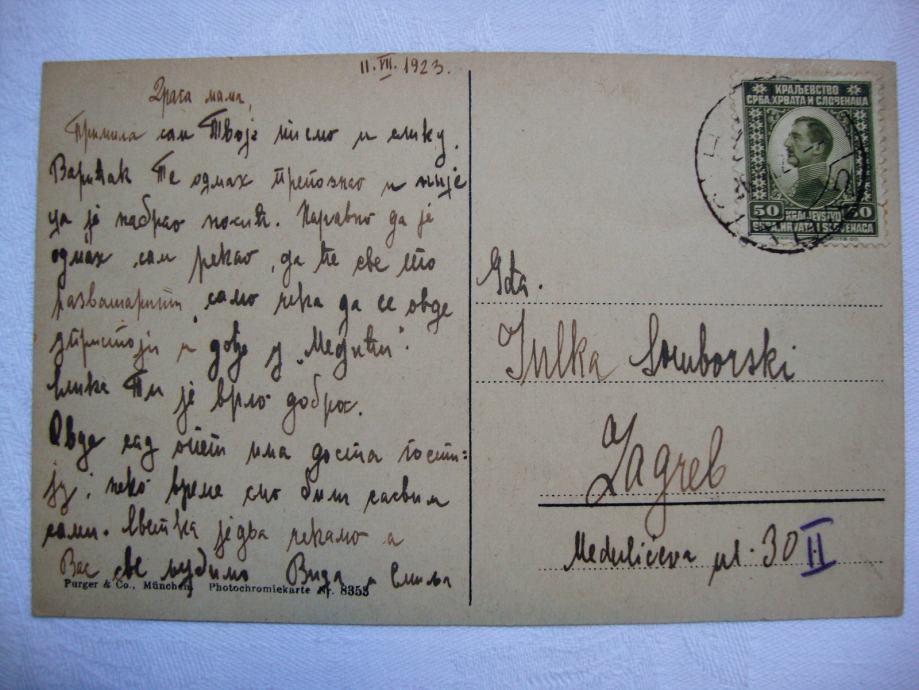 11. VII. 1923.
Драга мама,
Примила сам Твоје писмо и слику.
Варићак Те одмах препознао и није
да је набрао носић. Наравно да је
одмах сам рекао, да ће све то
само чека да се овде
и дође у „Медићи".
Слика Ти је врло добра.
Овде сад опет има доста гости=
ју; неко време смо били сасвим
сами. Цветка једва чекамо а
Вас све љубимо Вида и Смиља
Purger & Co., München. Photochromiekarte Nr. 8353
КРАЉЕВСТВО
СРБА, ХРВАТА И СЛОВЕНАЦА
50 KRALJEVSTVO 50
SRBA, HRVATA I SLOVENACA
Gđa.
Julka Somborski
Zagreb
Medulićeva ul. 30 II